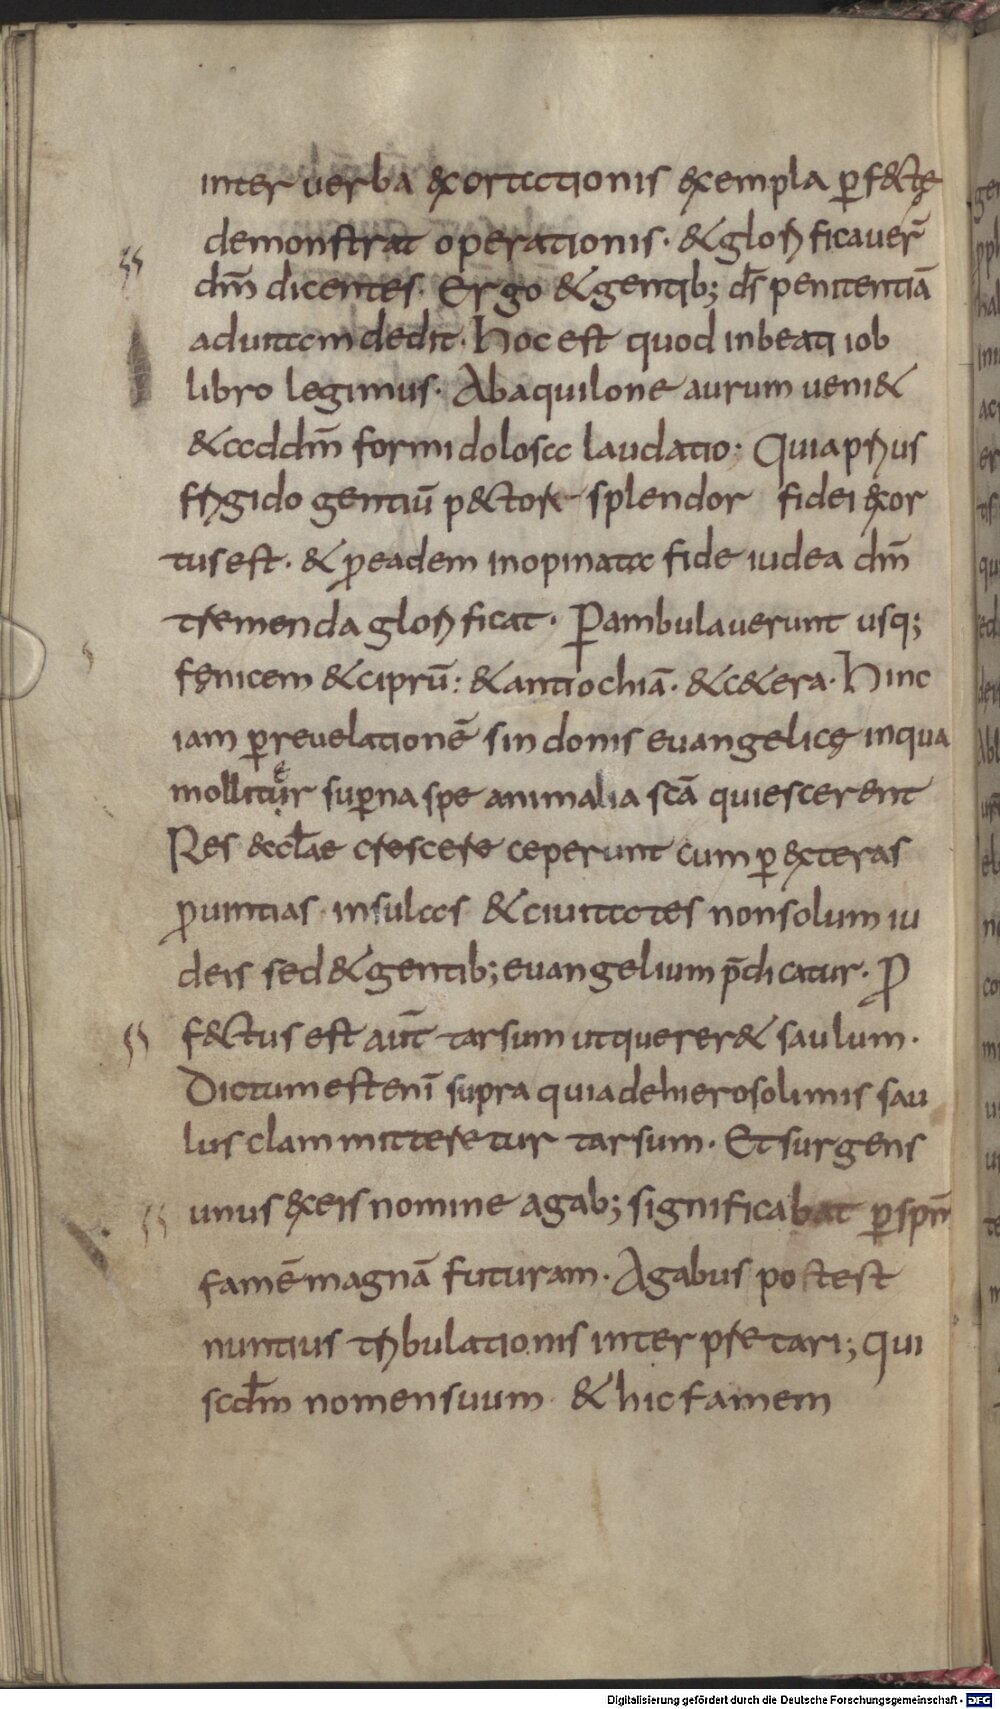 inter verba &xortationis &xempla p̲f&ctę
demonstrat operationis· &glorificaver̄
dm̄ dicentes· Ergo &gentib; ds̄ penitentiā
aduitam dedit· Hoc est quod inbeati iob
libro legimus· Abaquilone aurum veni&
&addm̄ formidolosa laudatio· Quiaprius
frigido gentiū p&ctore splendor fidei &xor
tus est· & peadem inopinata fide iudea dm̄
tremenda glorificat· Pambulaverunt usq;
fęnicem &ciprū: &antiochiā· &c&era· Hinc
iam p̲revelationē sindonis evangelicę inqua
mollitur̄ sup̲na spe animalia scā quiescerent
Res &ccl̄ae crescere ceperunt cum p̲ &xteras
p̲vintias insulas &civitates nonsolum iu
deis sed &gentib; evangelium p̄dicatur· P
f&ctus est aut̄ tarsum utquerer& saulum·
Dictum est enī supra quiadehierosolimis sau
lus clam mitteretur tarsum· Et surgens
unus &xeis nomine agab; significabat p̲ spm̄
famē magnā futuram· Agabus potest
nuntius tribulationis interpretari; qui
scdm̄ nomensuum & hic famem
Digitalisierung gefördert durch die Deutsche Forschungsgemeinschaft - DFG